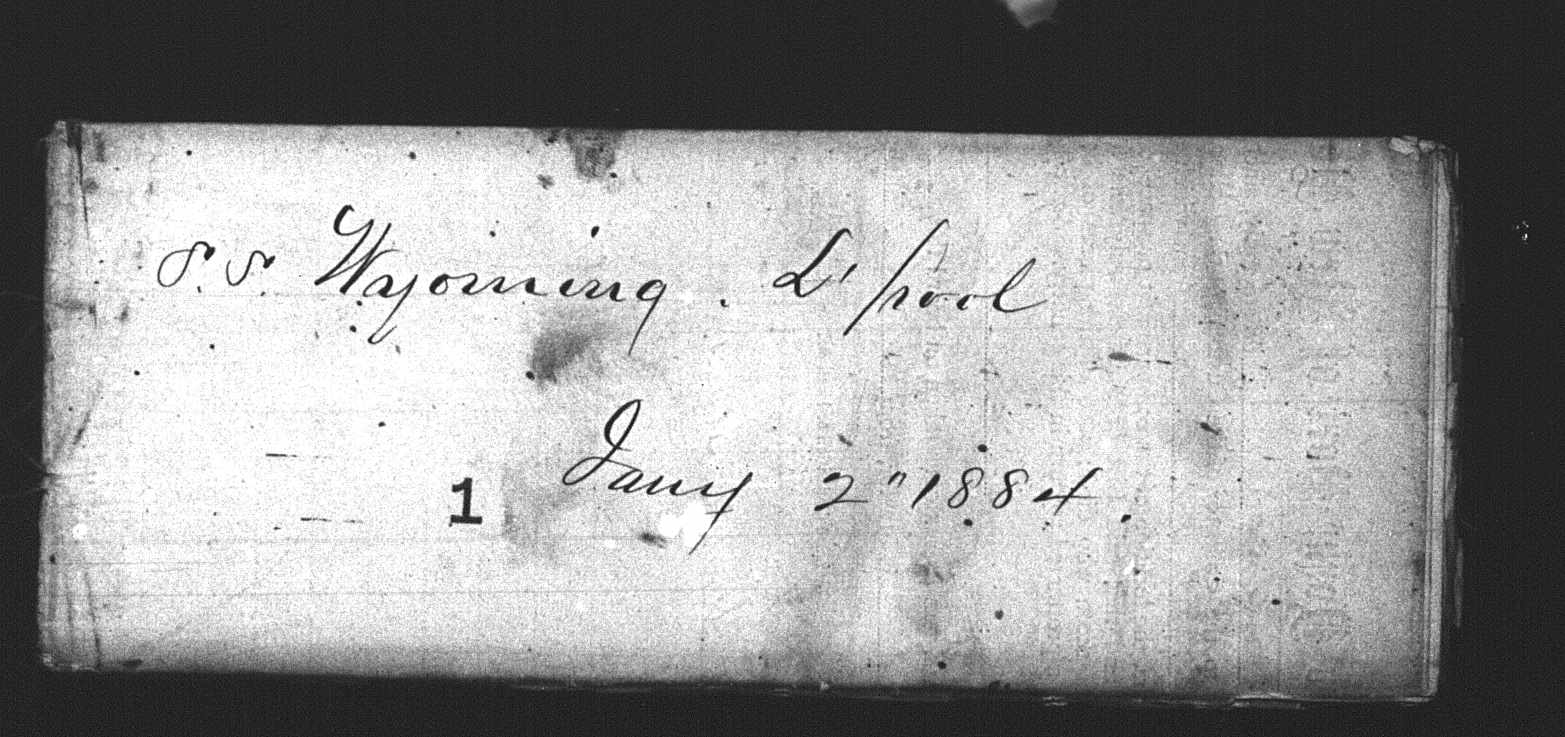 S.S. Wyoming. L'pool
Jany 2" 1884.
1